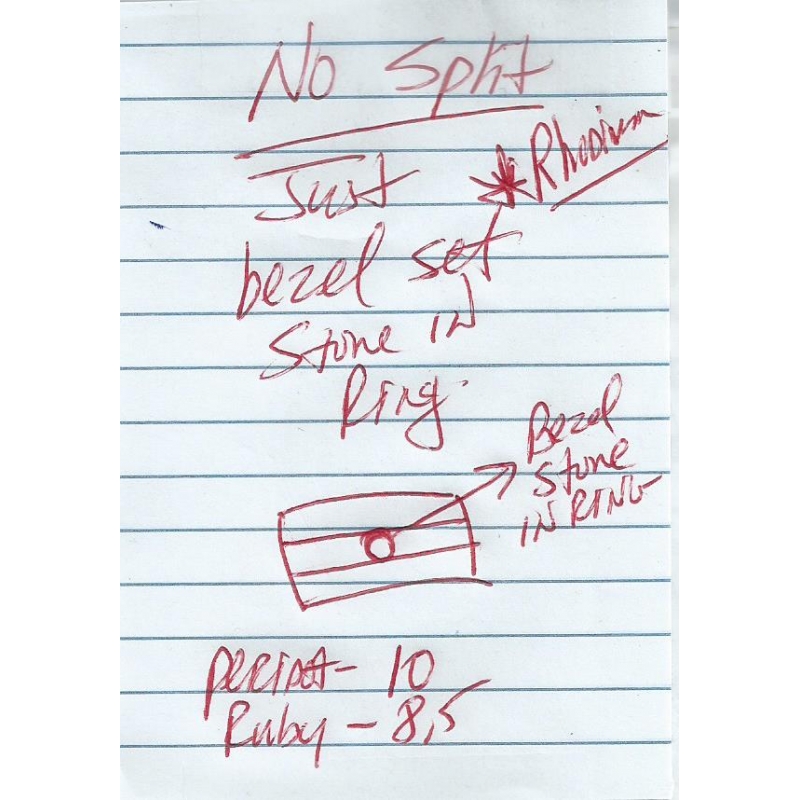 No Split
*Rhodium
Just
bezel set
Stone IN
Ring.
Bezel
Stone
IN RING
Peridot - 10
Ruby - 8,5